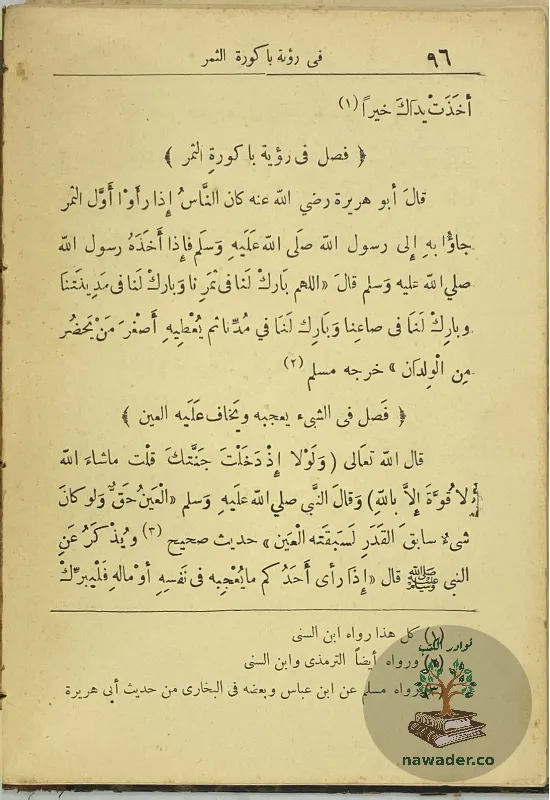 ٩٦
فى رؤية باكورة الثمر
أخَذَتْ يداكَ خيراً (١)
﴿ فصل فى رؤية باكورةِ الثمر ﴾
قالَ أبو هريرة رضي الله عنه كان النَّاسُ إذا رأَوْا أوَّل الثمر
جاؤُا بهِ إلى رسول الله صلَى الله عَلَيهِ وَسلَم فإذا أَخَذَهُ رسول الله
صلي الله عليه وَسلم قالَ «اللهم بَارِكْ لَنا فى ثمَرِنا وَبارِكْ لَنا فى مَدِينَتنَا
وبارِكْ لَنَا فى صاعِنا وَبَارِك لَنَا في مُدِّنا ثم يُعْطِيهِ أصْغَرَ مَنْ يَحضُر
مِن الْوِلدَان» خرجه مسلم (٢)
﴿ فَصل فى الشىء يعجبه ويخاف عَلَيه العين ﴾
قال الله تعَالى (وَلَوْلا إِذْ دَخَلْتَ جَنَّتكَ قلْت ماشاءَ الله
لا قُوةَ إلاَّ باللهِ) وَقالَ النَّبي صلي الله عَلَيهِ وَسلم «الْعَيْنُ حَقٌّ وَلو كانَ
شىءٌ سابقَ القَدَرِ لَسَبقَته الْعَين» حديث صحيح (٣) ويُذْكَرُ عَنِ
النبي ﷺ قال «إذَا رأى أَحَدُكم مايُعْجِبه فى نَفسِهِ أوْ مالهِ فَلْيبرِّكْ
(١) كل هذا رواه ابن السنى
(٢) ورواه أيضاً الترمذى وابن السنى
رواه مسلم عن ابن عباس وبعضه فى البخارى من حديث أبى هريرة
نوادر الكتب
nawader.co